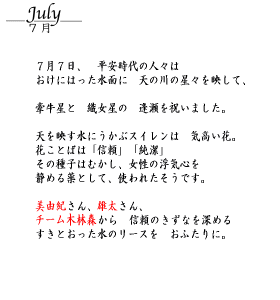 July
7月
7月7日、　平安時代の人々は
おけにはった水面に　天の川の星々を映して、
牽牛星と　織女星の　逢瀬を祝いました。
天を映す水にうかぶスイレンは　気高い花。
花ことばは「信頼」「純潔」
その種子はむかし、女性の浮気心を
静める薬として、使われたそうです。
美由紀さん、雄太さん、
チーム木林森から　信頼のきずなを深める
すきとおった水のリースを　おふたりに。